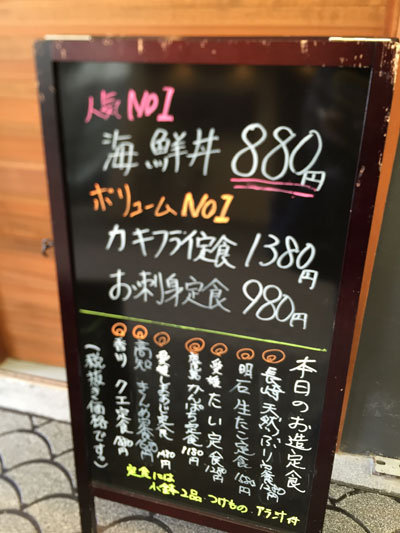 人気 NO1
海鮮丼 880円
ボリューム NO1
カキフライ定食 1380円
お刺身定食 980円
本日のお造定食
長崎 天然ぶり定食
明石 生たこ定食
愛媛 たい定食
かんぱち定食 1180円
愛媛 しまあじ定食
高知 きんめ定食
クエ定食
(税抜き価格です。)
定食には
小鉢2品 つけもの アラ汁付